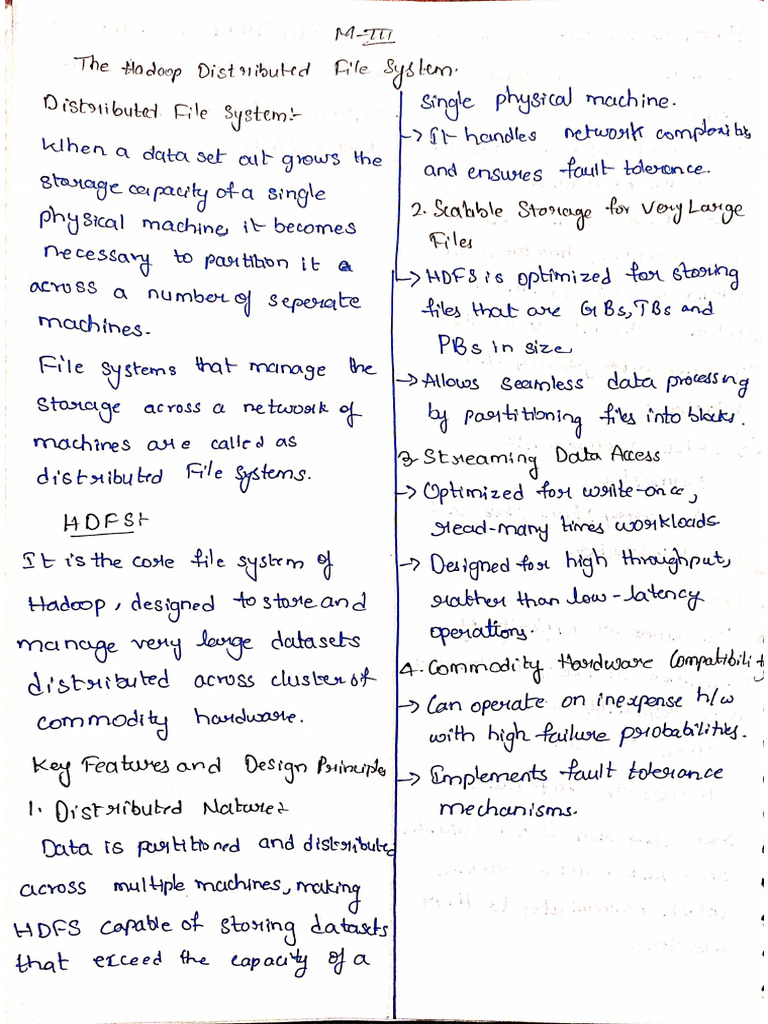 M-III
The Hadoop Distributed File System.
Distributed File System:-
When a data set out grows the
storage capacity of a single
physical machine, it becomes
necessary to partition it a
across a number of seperate
machines.
File systems that manage the
storage across a network of
machines are called as
distributed File Systems.
HDFS:-
It is the core file system of
Hadoop, designed to store and
manage very large datasets
distributed across cluster of
commodity hardware.
Key Features and Design Principle
1. Distributed Nature:-
Data is partitioned and distributed
across multiple machines, making
HDFS capable of storing datasets
that exceed the capacity of a
single physical machine.
→ It handles network complexities
and ensures fault tolerance.
2. Scalable Storage for Very Large
Files
→ HDFS is optimized for storing
files that are GBs, TBs and
PBs in size
→ Allows seamless data processing
by partitioning files into blocks.
3. Streaming Data Access
→ Optimized for write-once,
read-many times workloads
→ Designed for high throughput,
rather than low-latency
operations.
4. Commodity Hardware Compatibility
→ Can operate on inexpense h/w
with high failure probabilities.
→ Implements fault tolerance
mechanisms.